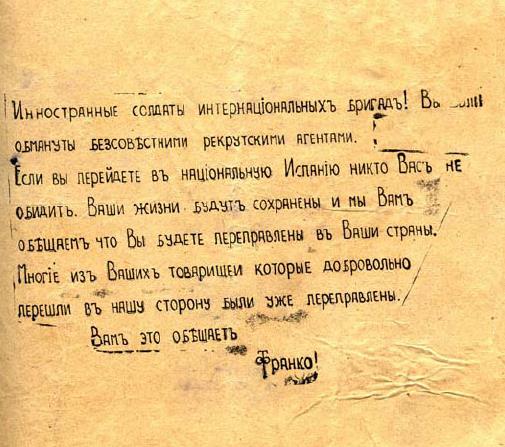 Инностранные солдаты интернаціональныхъ бригадъ! Вы
обмануты безсовѣстними рекрутскими агентами.
Если вы перейдете въ національную Испанію никто Васъ не
обидить. Ваши жизни будутъ сохранены и мы Вамъ
обѣщаемъ что Вы будете переправлены въ Ваши страны.
Многіе изъ Вашихъ товарищеи которые добровольно
перешли въ нашу сторону были уже переправлены.
Вамъ это обѣщаетъ
Франко!